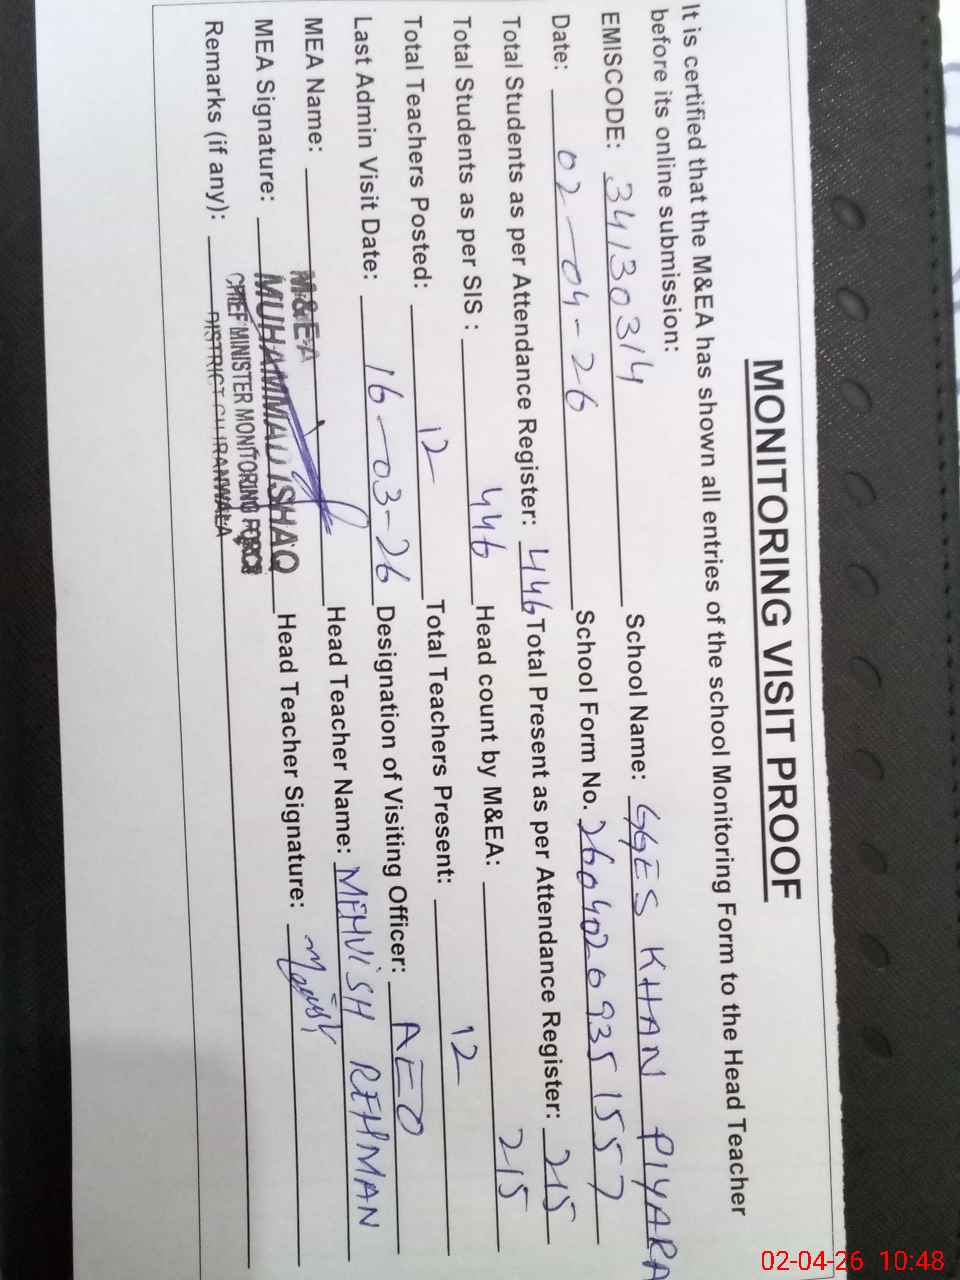 MONITORING VISIT PROOF
It is certified that the M&EA has shown all entries of the school Monitoring Form to the Head Teacher
before its online submission:
EMISCODE: 34130314 School Name: GGES KHAN PIYARA
Date: 02-04-26 School Form No. 260402093515 57
Total Students as per Attendance Register: 446 Total Present as per Attendance Register: 215
Total Students as per SIS : 446 Head count by M&EA: 215
Total Teachers Posted: 12 Total Teachers Present: 12
Last Admin Visit Date: 16-03-26 Designation of Visiting Officer: AEO
MEA Name: M&EA Head Teacher Name: MEHVISH REHMAN
MEA Signature: MUHAMMAD ISHAQ Head Teacher Signature:
CHIEF MINISTER MONITORING FORCE
Remarks (if any): DISTRICT GUJRANWALA
02-04-26 10:48